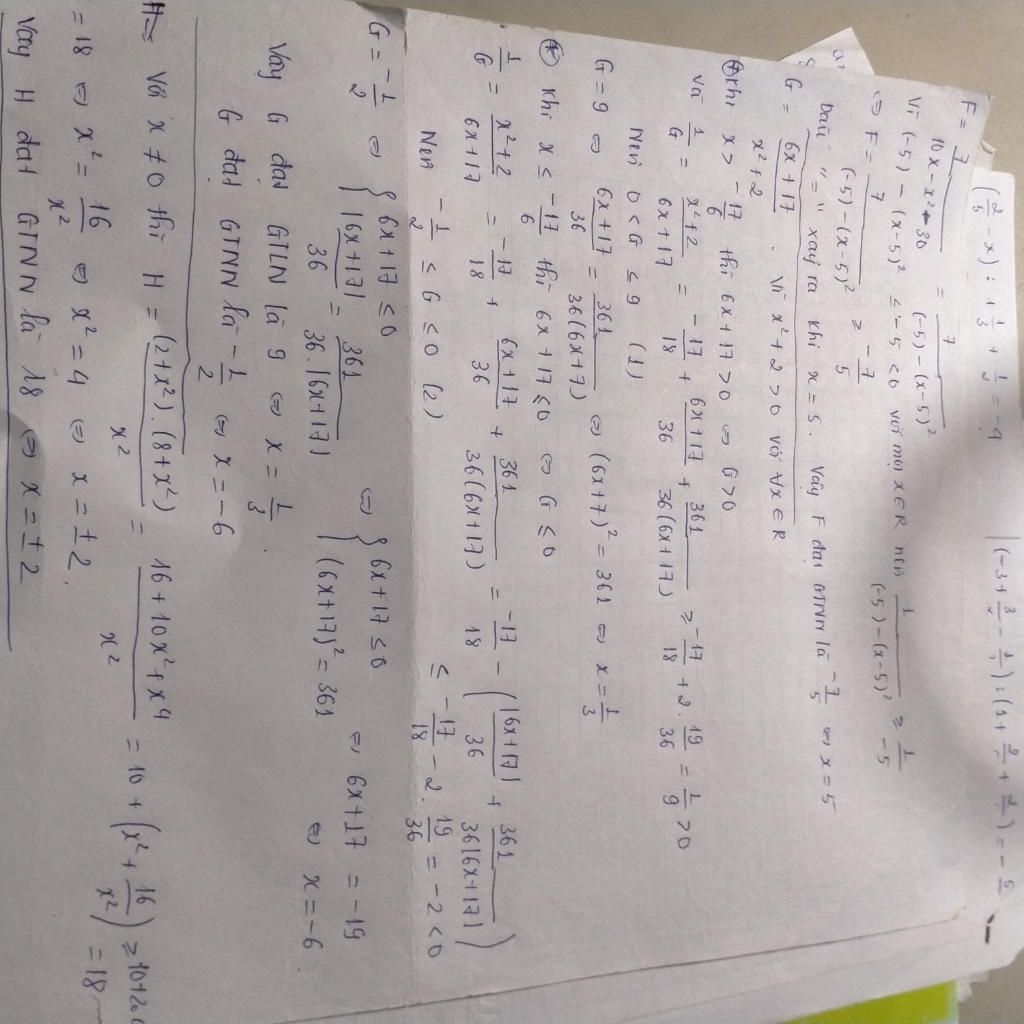 (2/5 - x) : 1 1/3 + 1/2 = -4
F = 7/(10x - x² - 30) = 7/((-5) - (x-5)²)
Vì (-5) - (x-5)² ≤ -5 < 0 với mọi x ∈ R nên 1/((-5) - (x-5)²) ≥ 1/-5
⇔ F = 7/((-5) - (x-5)²) ≥ -7/5
Dấu "=" xảy ra khi x = 5. Vậy F đạt GTNN là -7/5 ⇔ x = 5
G = (6x+17)/(x²+2). Vì x²+2 > 0 với ∀x ∈ R
⊛ Khi x > -17/6 thì 6x+17 > 0 ⇔ G > 0
Và 1/G = (x²+2)/(6x+17) = -17/18 + (6x+17)/36 + 361/(36(6x+17)) ≥ -17/18 + 2. 19/36 = 1/9 > 0
Nên 0 < G ≤ 9 (1)
G = 9 ⇔ (6x+17)/36 = 361/(36(6x+17)) ⇔ (6x+7)² = 361 ⇔ x = 1/3
⊛ Khi x ≤ -17/6 thì 6x+17 ≤ 0 ⇔ G ≤ 0
1/G = (x²+2)/(6x+17) = -17/18 + (6x+17)/36 + 361/(36(6x+17)) = -17/18 - (|6x+17|/36 + 361/(36|6x+17|))
≤ -17/18 - 2. 19/36 = -2 < 0
Nên -1/2 ≤ G ≤ 0 (2)
G = -1/2 ⇔ { 6x+17 ≤ 0 ; |6x+17|/36 = 361/(36.|6x+17|) ⇔ { 6x+17 ≤ 0 ; (6x+17)² = 361 ⇔ 6x+17 = -19
⇔ x = -6
Vậy G đạt GTLN là 9 ⇔ x = 1/3.
G đạt GTNN là -1/2 ⇔ x = -6
Với x ≠ 0 thì H = (2+x²).(8+x²)/x² = (16+10x²+x⁴)/x² = 10 + (x² + 16/x²) ≥ 10+2.
= 18
= 18 ⇔ x² = 16/x² ⇔ x² = 4 ⇔ x = ±2.
Vậy H đạt GTNN là 18 ⇔ x = ±2